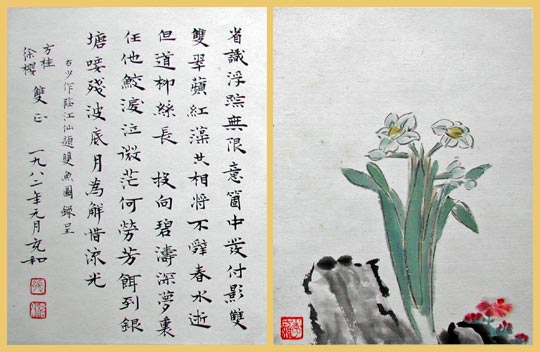 省識浮踪無限意箇中發付影雙
雙翠蘋紅藻共相將不辭春水逝
但道柳絲長 投向碧濤深夢裏
任他鮫淚泣微茫何勞芳餌到銀
塘唼殘波底月為解惜流光
右少作臨江仙題雙魚圖錄呈
方桂
徐櫻 雙正 一九八二年元月充和